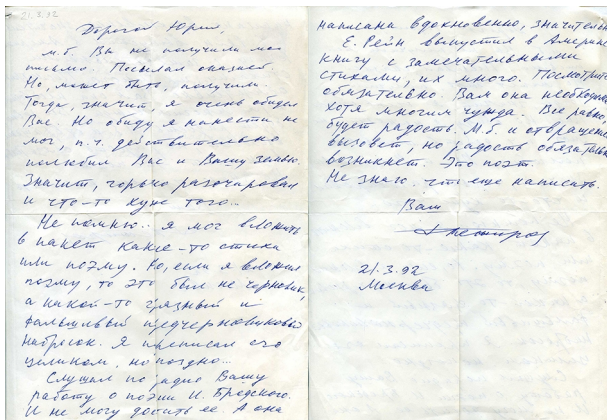 21.3.92
Дорогой Юрий,
М.б. Вы не получили мое
письмо. Посылал оказией.
Но, может быть, получили.
Тогда, значит, я очень обидел
Вас. Но обиду я нанести не
мог, п.ч. действительно
полюбил Вас и Вашу семью.
Значит, горько разочаровал
и что-то хуже того...
Не помню.. я мог вложить
в пакет какие-то стихи
или поэму. Но, если я вложил
поэму, то это был не черновик,
а какой-то грязный и
фальшивый предчерновиковый
набросок. Я переписал его
целиком, но поздно...
Слушал по радио Вашу
работу о поэзии И. Бродского.
И не могу достать ее. А она
написана вдохновенно, значительн
Е. Рейн выпустил в Америке
книгу с замечательными
стихами, их много. Посмотрите
обязательно. Вам она необходима
хотя многим чужда. Все равно,
будет радость. М.б. и отвращение
вызовет, но радость обязательно
возникнет. Это поэт.
Не знаю, что еще написать.
Ваш
21.3.92
Москва